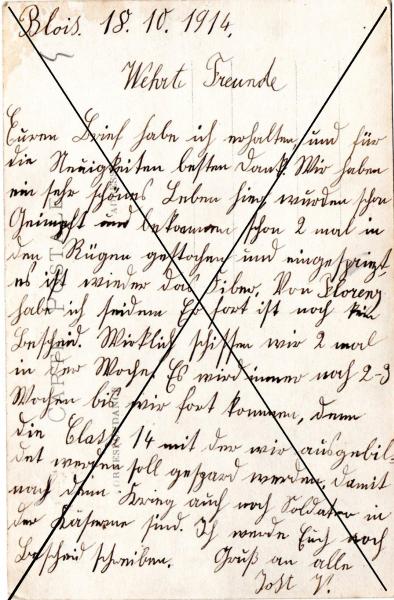 Blois. 18. 10. 1914.
Wehrte Freunde
Euren Brief habe ich erhalten und für
die Neuigkeiten besten Dank. Wir haben
ein sehr schönes Leben hier, wurden schon
Geimpft und bekommen schon 2 mal in
den Rügen gestochen und eingesprizt
es ist wieder das Fiber. Von Florenz
habe ich seidem Er fort ist noch kein
Bescheid. Wirklich schiessen wir 2 mal
in der Woche. Es wird immer noch 2-3
Wochen bis wir fort kommen, denn
die Class 14 mit der wir ausgebil-
det werden soll gespard werden, damit
nach dem Krieg auch noch Soldaten in
der Käserne sind. Ich werde Euch noch
Bescheid schreiben. Gruß an alle
CARTE POSTALE
CORRESPONDANCE